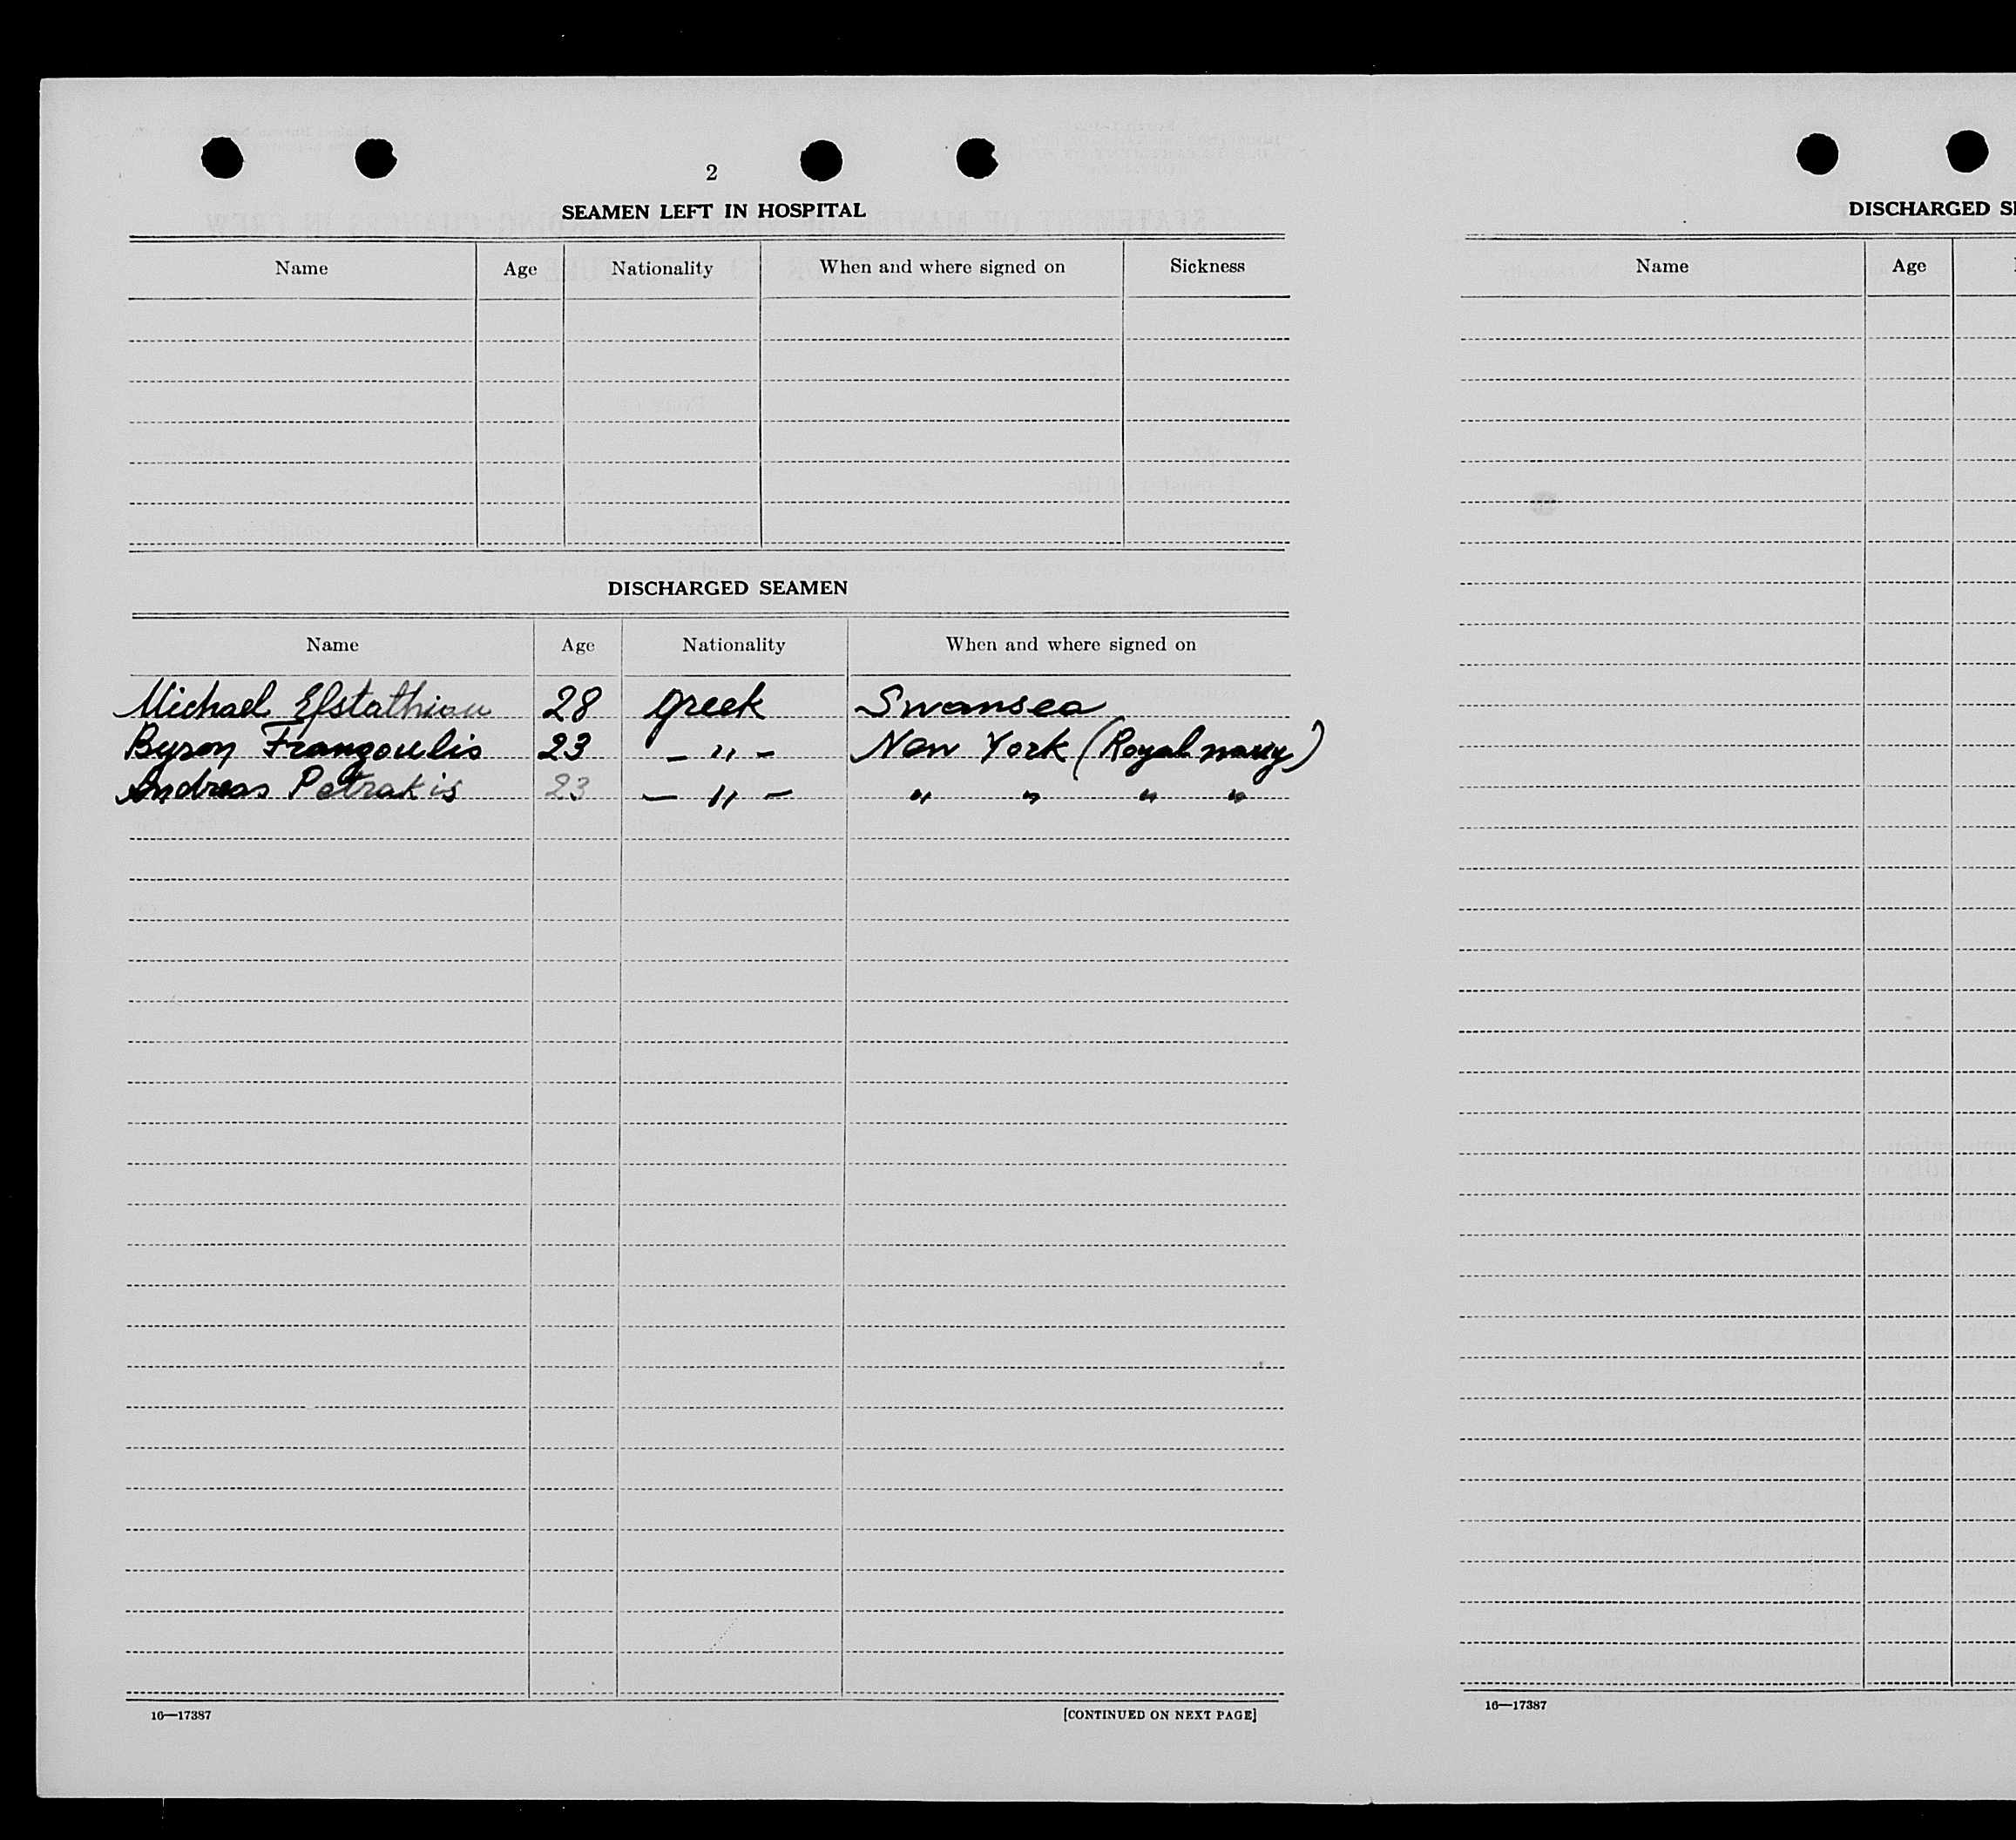 2
SEAMEN LEFT IN HOSPITAL
Name Age Nationality When and where signed on Sickness
DISCHARGED SEAMEN
Name Age Nationality When and where signed on
Michael Efstathiou 28 Greek Swansea
Byron Frangoulis 23 — " — New York (Royal navy)
Andreas Petrakis 23 — " — " " " "
16—17387 [CONTINUED ON NEXT PAGE]
DISCHARGED S
Name Age
16—17387